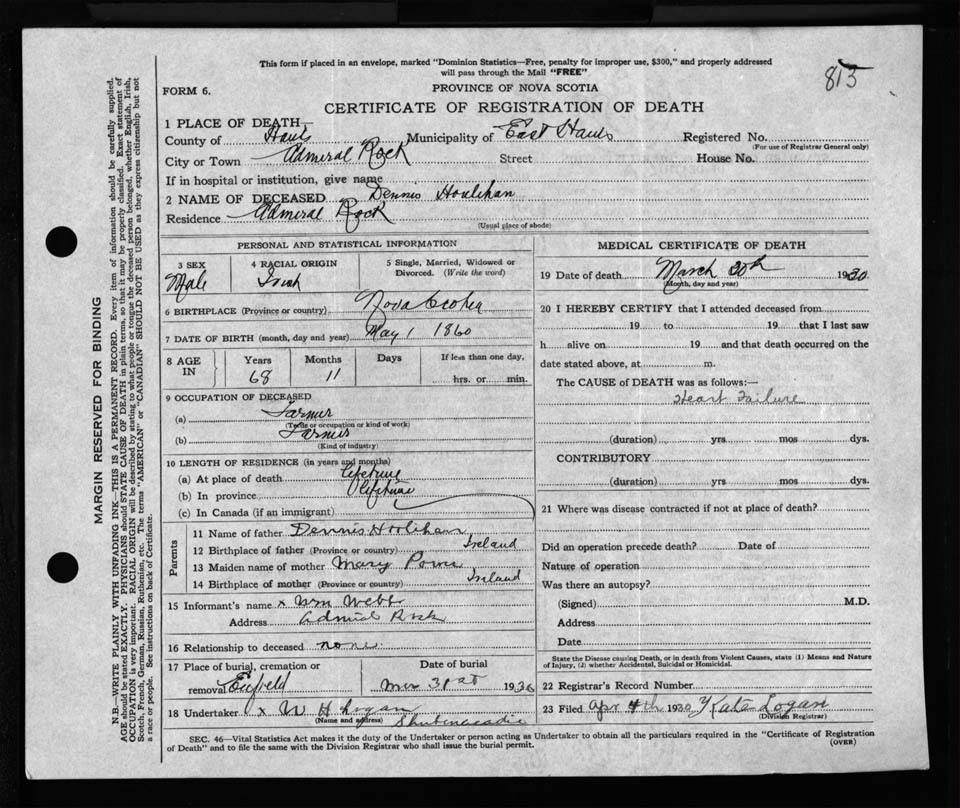 This form if placed in an envelope, marked "Dominion Statistics—Free, penalty for improper use, $300," and properly addressed
will pass through the Mail "FREE"
815
FORM 6.
PROVINCE OF NOVA SCOTIA
CERTIFICATE OF REGISTRATION OF DEATH
1 PLACE OF DEATH
County of Hants Municipality of East Hants Registered No.
(For use of Registrar General only)
City or Town Admiral Rock Street House No.
If in hospital or institution, give name
2 NAME OF DECEASED Dennis Houlihan
Residence Admiral Rock
(Usual place of abode)
PERSONAL AND STATISTICAL INFORMATION
3 SEX 4 RACIAL ORIGIN 5 Single, Married, Widowed or Divorced. (Write the word)
Male Irish
6 BIRTHPLACE (Province or country) Nova Scotia
7 DATE OF BIRTH (month, day and year) May 1 1860
8 AGE IN Years Months Days If less than one day.
68 11 hrs. or min.
9 OCCUPATION OF DECEASED
(a) Farmer
(Trade or occupation or kind of work)
(b) Farmer
(Kind of industry)
10 LENGTH OF RESIDENCE (in years and months)
(a) At place of death lifetime
(b) In province lifetime
(c) In Canada (if an immigrant)
Parents
11 Name of father Dennis Hoolihan
12 Birthplace of father (Province or country) Ireland
13 Maiden name of mother Mary Power
14 Birthplace of mother (Province or country) Ireland
15 Informant's name x Wm Webb
Address Admiral Rock
16 Relationship to deceased none.
17 Place of burial, cremation or removal Enfield
Date of burial
Mar 31st 1930
18 Undertaker x W H Logan
(Name and address) Shubenacadie
MEDICAL CERTIFICATE OF DEATH
19 Date of death March 30th 1930
(Month, day and year)
20 I HEREBY CERTIFY that I attended deceased from
19 to 19 that I last saw
h alive on 19 and that death occurred on the
date stated above, at m.
The CAUSE of DEATH was as follows:—
Heart Failure
(duration) yrs mos dys.
CONTRIBUTORY
(duration) yrs. mos. dys.
21 Where was disease contracted if not at place of death?
Did an operation precede death? Date of
Nature of operation
Was there an autopsy?
(Signed) M.D.
Address
Date
State the Disease causing Death, or in death from Violent Causes, state (1) Means and Nature
of Injury, (2) whether Accidental, Suicidal or Homicidal.
22 Registrar's Record Number
23 Filed Apr 4th 1930 Kate Logan
(Division Registrar)
SEC. 46—Vital Statistics Act makes it the duty of the Undertaker or person acting as Undertaker to obtain all the particulars required in the "Certificate of Registration
of Death" and to file the same with the Division Registrar who shall issue the burial permit.
(OVER)
MARGIN RESERVED FOR BINDING
N.B.—WRITE PLAINLY WITH UNFADING INK—THIS IS A PERMANENT RECORD. Every item of information should be carefully supplied.
AGE should be stated EXACTLY. PHYSICIANS should STATE CAUSE OF DEATH in plain terms, so that it may be properly classified. Exact statement of
OCCUPATION is very important. RACIAL ORIGIN will be described by stating to what people or tongue the deceased person belonged, whether English, Irish,
Scotch, French, German, Russian, Ruthenian, etc. The terms "AMERICAN" or "CANADIAN" SHOULD NOT BE USED as they express citizenship but not
a race or people. See instructions on back of Certificate.